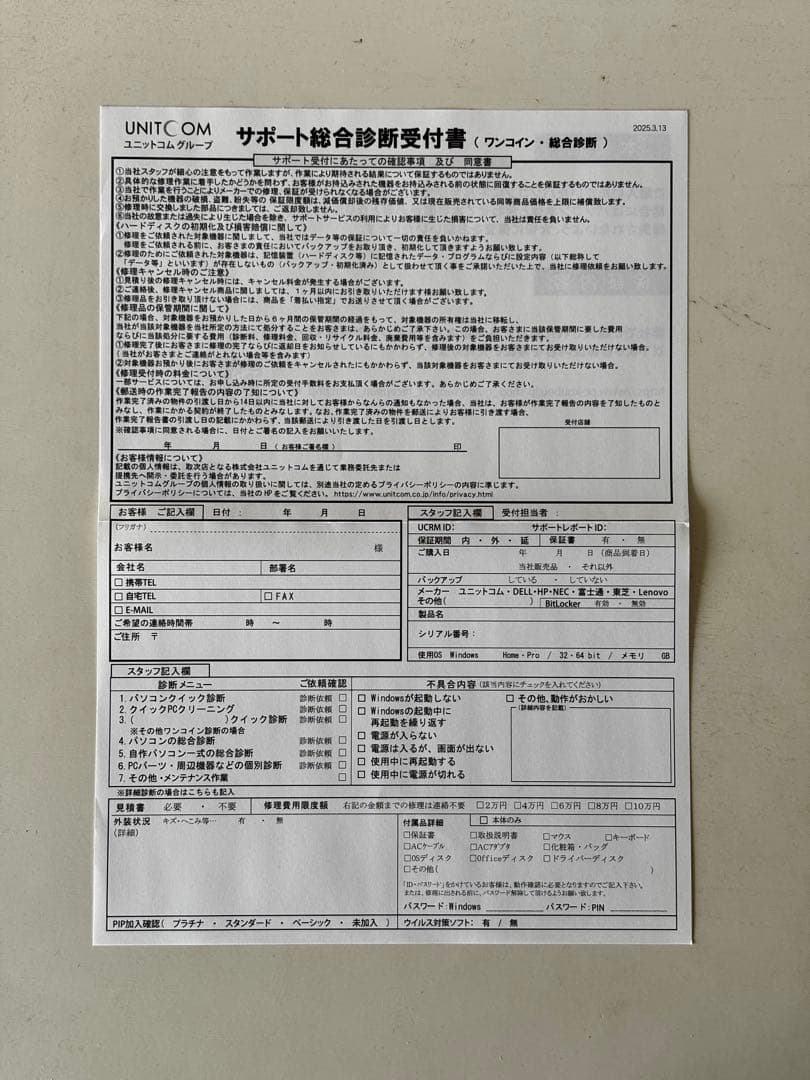 UNITCOM
ユニットコム グループ
サポート総合診断受付書 ( ワンコイン・総合診断 )
2025.3.13
サポート受付にあたっての確認事項 及び 同意書
①当社スタッフが細心の注意をもって作業しますが、作業により期待される結果について保証するものではありません。
②具体的な修理作業に着手したかどうかを問わず、お客様がお持込みされた機器をお持込みされる前の状態に回復することを保証するものではありません。
③当社で作業を行うことによりメーカーでの修理、保証が受けられなくなる場合がございます。
④お預かりした機器の破損、盗難、紛失等の 保証限度額は、減価償却後の残存価値、又は現在販売されている同等商品価格を上限に補償致します。
⑤修理時に交換しました部品につきましては、ご返却致しません。
⑥当社の故意または過失により生じた場合を除き、サポートサービスの利用によりお客様に生じた損害について、当社は責任を負いません。
《ハードディスクの初期化及び損害賠償に関して》
①修理をご依頼された対象機器に関しまして、当社ではデータ等の保証について一切の責任を負いかねます。
修理をご依頼される前に、お客さまの責任においてバックアップをお取り頂き、初期化して頂きますようお願い致します。
②修理のためにご依頼された対象機器は、記憶装置（ハードディスク等）に記憶されたデータ・プログラムならびに設定内容（以下総称して
「データ等」といいます）が存在しないもの（バックアップ・初期化済み）として扱わせて頂く事をご承諾いただいた上で、当社に修理依頼をお願い致します。
《修理キャンセル時のご注意》
①見積り後の修理キャンセル時には、キャンセル料金が発生する場合がございます。
②ご連絡後、修理キャンセル商品に関しましては、１ヶ月以内にお引き取りいただけます様お願い致します。
③修理品をお引き取り頂けない場合には、商品を「着払い指定」でお送りさせて頂く場合がございます。
《修理品の保管期間に関して》
下記の場合、対象機器をお預かりした日から６ヶ月間の保管期間の経過をもって、対象機器の所有権は当社に移転し、
当社が当該対象機器を当社所定の方法にて処分することをお客さまは、あらかじめご了承下さい。この場合、お客さまに当該保管期間に要した費用
ならびに当該処分に要する費用（診断料、修理料金、回収・リサイクル料金、廃棄費用等を含みます）をご負担いただきます。
①修理完了後にお客さまに修理の完了ならびに返却日をお知らせしているにもかかわらず、修理後の対象機器をお客さまにてお受け取りいただけない場合。
（当社がお客さまとご連絡がとれない場合等を含みます）
②対象機器お預かり後にお客さまが修理のご依頼をキャンセルされたにもかかわらず、当該対象機器をお客さまにてお受け取りいただけない場合。
《修理受付時の料金について》
一部サービスについては、お申し込み時に所定の受付手数料をお支払頂く場合がございます。あらかじめご了承ください。
《郵送時の作業完了報告の内容の了知について》
作業完了済みの物件の引渡し日から14日以内に当社に対してお客様からなんらの通知もなかった場合、当社は、お客様が作業完了報告の内容を了知したものと
みなし、作業にかかる契約が終了したものとみなします。なお、作業完了済みの物件を郵送によりお客様に引き渡す場合、
作業完了報告書の引渡し日の記載にかかわらず、当該郵送により引き渡した日を引渡し日とします。
※確認事項に同意される場合に、日付とご署名の記入をお願いいたします。
年 月 日 ( お客様ご署名欄 ) 印
受付店舗
《お客様情報について》
記載の個人情報は、取次店となる株式会社ユニットコムを通じて業務委託先または
提携先へ開示・委託を行う場合があります。
ユニットコムグループの個人情報の取り扱いに関しては、別途当社の定めるプライバシーポリシーの内容に準じます。
プライバシーポリシーについては、当社のHPをご覧ください。https://www.unitcom.co.jp/info/privacy.html
お客様 ご記入欄 日付： 年 月 日
(フリガナ)
お客様名 様
会社名 部署名
□ 携帯TEL
□ 自宅TEL □ FAX
□ E-MAIL
ご希望の連絡時間帯 時 ～ 時
ご住所 〒
スタッフ記入欄 受付担当者：
UCRM ID： サポートレポート ID：
保証期間 内・外・延 保証書 有・無
ご購入日 年 月 日（商品到着日）
当社販売品 ・ それ以外
バックアップ している ・ していない
メーカー ユニットコム・DELL・HP・NEC・富士通・東芝・Lenovo
その他( ) BitLocker 有効 ・ 無効
製品名
シリアル番号：
使用OS Windows Home・Pro / 32・64 bit / メモリ GB
スタッフ記入欄
診断メニュー ご依頼確認
1. パソコンクイック診断 診断依頼 □
2. クイックPCクリーニング 診断依頼 □
3. ( )クイック診断 診断依頼 □
※その他ワンコイン診断の場合
4. パソコンの総合診断 診断依頼 □
5. 自作パソコン一式の総合診断 診断依頼 □
6. PCパーツ・周辺機器などの個別診断 診断依頼 □
7. その他・メンテナンス作業 □
不具合内容 (該当内容にチェックを入れてください)
□ Windowsが起動しない
□ Windowsの起動中に
再起動を繰り返す
□ 電源が入らない
□ 電源は入るが、画面が出ない
□ 使用中に再起動する
□ 使用中に電源が切れる
□ その他、動作がおかしい
(詳細内容を記載)
※詳細診断の場合はこちらも記入
見積書 必要 ・ 不要 修理費用限度額 右記の金額までの修理は連絡不要 □2万円 □4万円 □6万円 □8万円 □10万円
外装状況 キズ・へこみ等… 有 ・ 無
(詳細)
付属品詳細 □ 本体のみ
□保証書 □取扱説明書 □マウス □キーボード
□ACケーブル □ACアダプタ □化粧箱・バッグ
□OSディスク □Officeディスク □ドライバーディスク
□その他( )
「ID・パスワード」をかけているお客様は、動作確認に必要となりますのでご記入下さい。
または、修理に出される前に、パスワード解除して頂けるようお願い致します。
パスワード：Windows パスワード：PIN
PIP加入確認( プラチナ ・ スタンダード ・ ベーシック ・ 未加入 ) ウイルス対策ソフト： 有 / 無